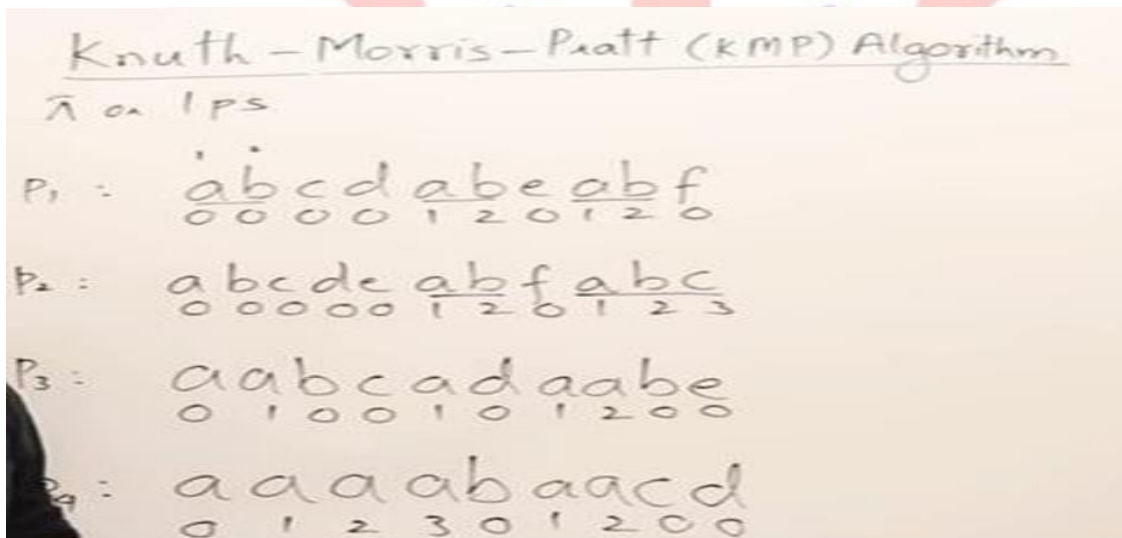 Knuth - Morris - Pratt (KMP) Algorithm
π or lps
P1 : a b c d a b e a b f
0 0 0 0 1 2 0 1 2 0
P2 : a b c d e a b f a b c
0 0 0 0 0 1 2 0 1 2 3
P3 : a a b c a d a a b e
0 1 0 0 1 0 1 2 0 0
P4 : a a a a b a a c d
0 1 2 3 0 1 2 0 0